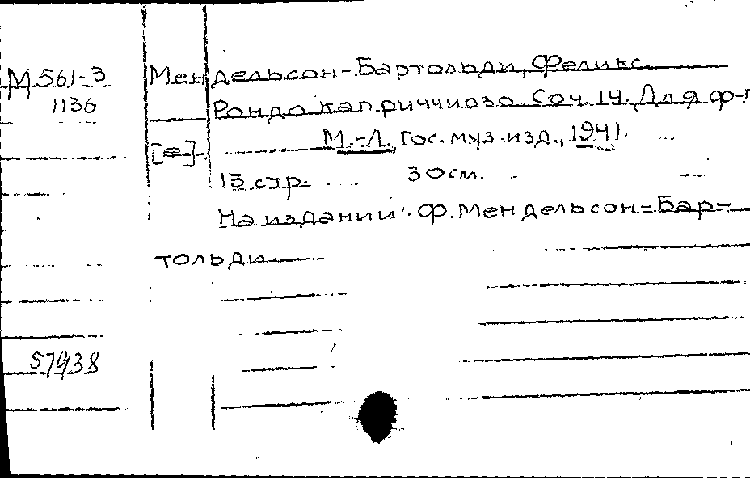 М 561-3
1136
Мендельсон-Бартольди, Феликс.
Рондо каприччиозо. Соч. 14. Для ф-п
М.-Л., Гос. муз. изд., 1941.
[≡]
15 стр. 30 см.
На издании: Ф. Мендельсон-Бар-
тольди
57938